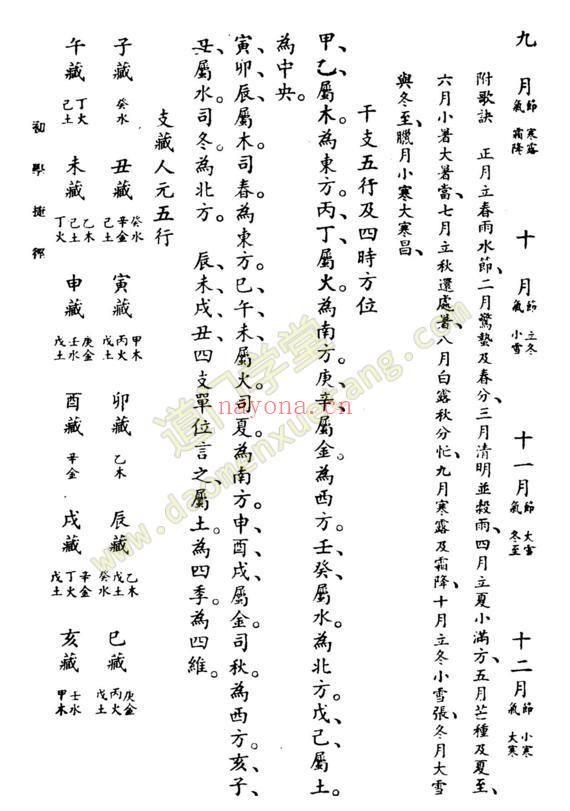 九月 節寒露 氣霜降 十月 節立冬 氣小雪 十一月 節大雪 氣冬至 十二月 節小寒 氣大寒
附歌訣 正月立春雨水節、二月驚蟄及春分、三月清明並穀雨、四月立夏小滿方、五月芒種及夏至、
六月小暑大暑當、七月立秋還處暑、八月白露秋分忙、九月寒露及霜降、十月立冬小雪張、冬月大雪
與冬至、臘月小寒大寒昌、
干支五行及四時方位
甲、乙、屬木。為東方。丙、丁、屬火。為南方。庚、辛、屬金。為西方。壬、癸、屬水。為北方。戊、己、屬土。
為中央。
寅、卯、辰、屬木。司春。為東方。巳、午、未、屬火。司夏。為南方。申、酉、戌、屬金。司秋。為西方。亥、子、
丑、屬水。司冬。為北方。 辰、未、戌、丑、四支單位言之、屬土。為四季。為四維。
支藏人元五行
子藏 癸水 丑藏 癸水 辛金 己土 寅藏 甲木 丙火 戊土 卯藏 乙木 辰藏 乙木 戊土 癸水 巳藏 庚金 丙火 戊土
午藏 丁火 己土 未藏 乙木 己土 丁火 申藏 庚金 壬水 戊土 酉藏 辛金 戌藏 辛金 丁火 戊土 亥藏 壬水 甲木
初學捷徑
道门学堂
www.daomenxuetang.com
nayona.cn